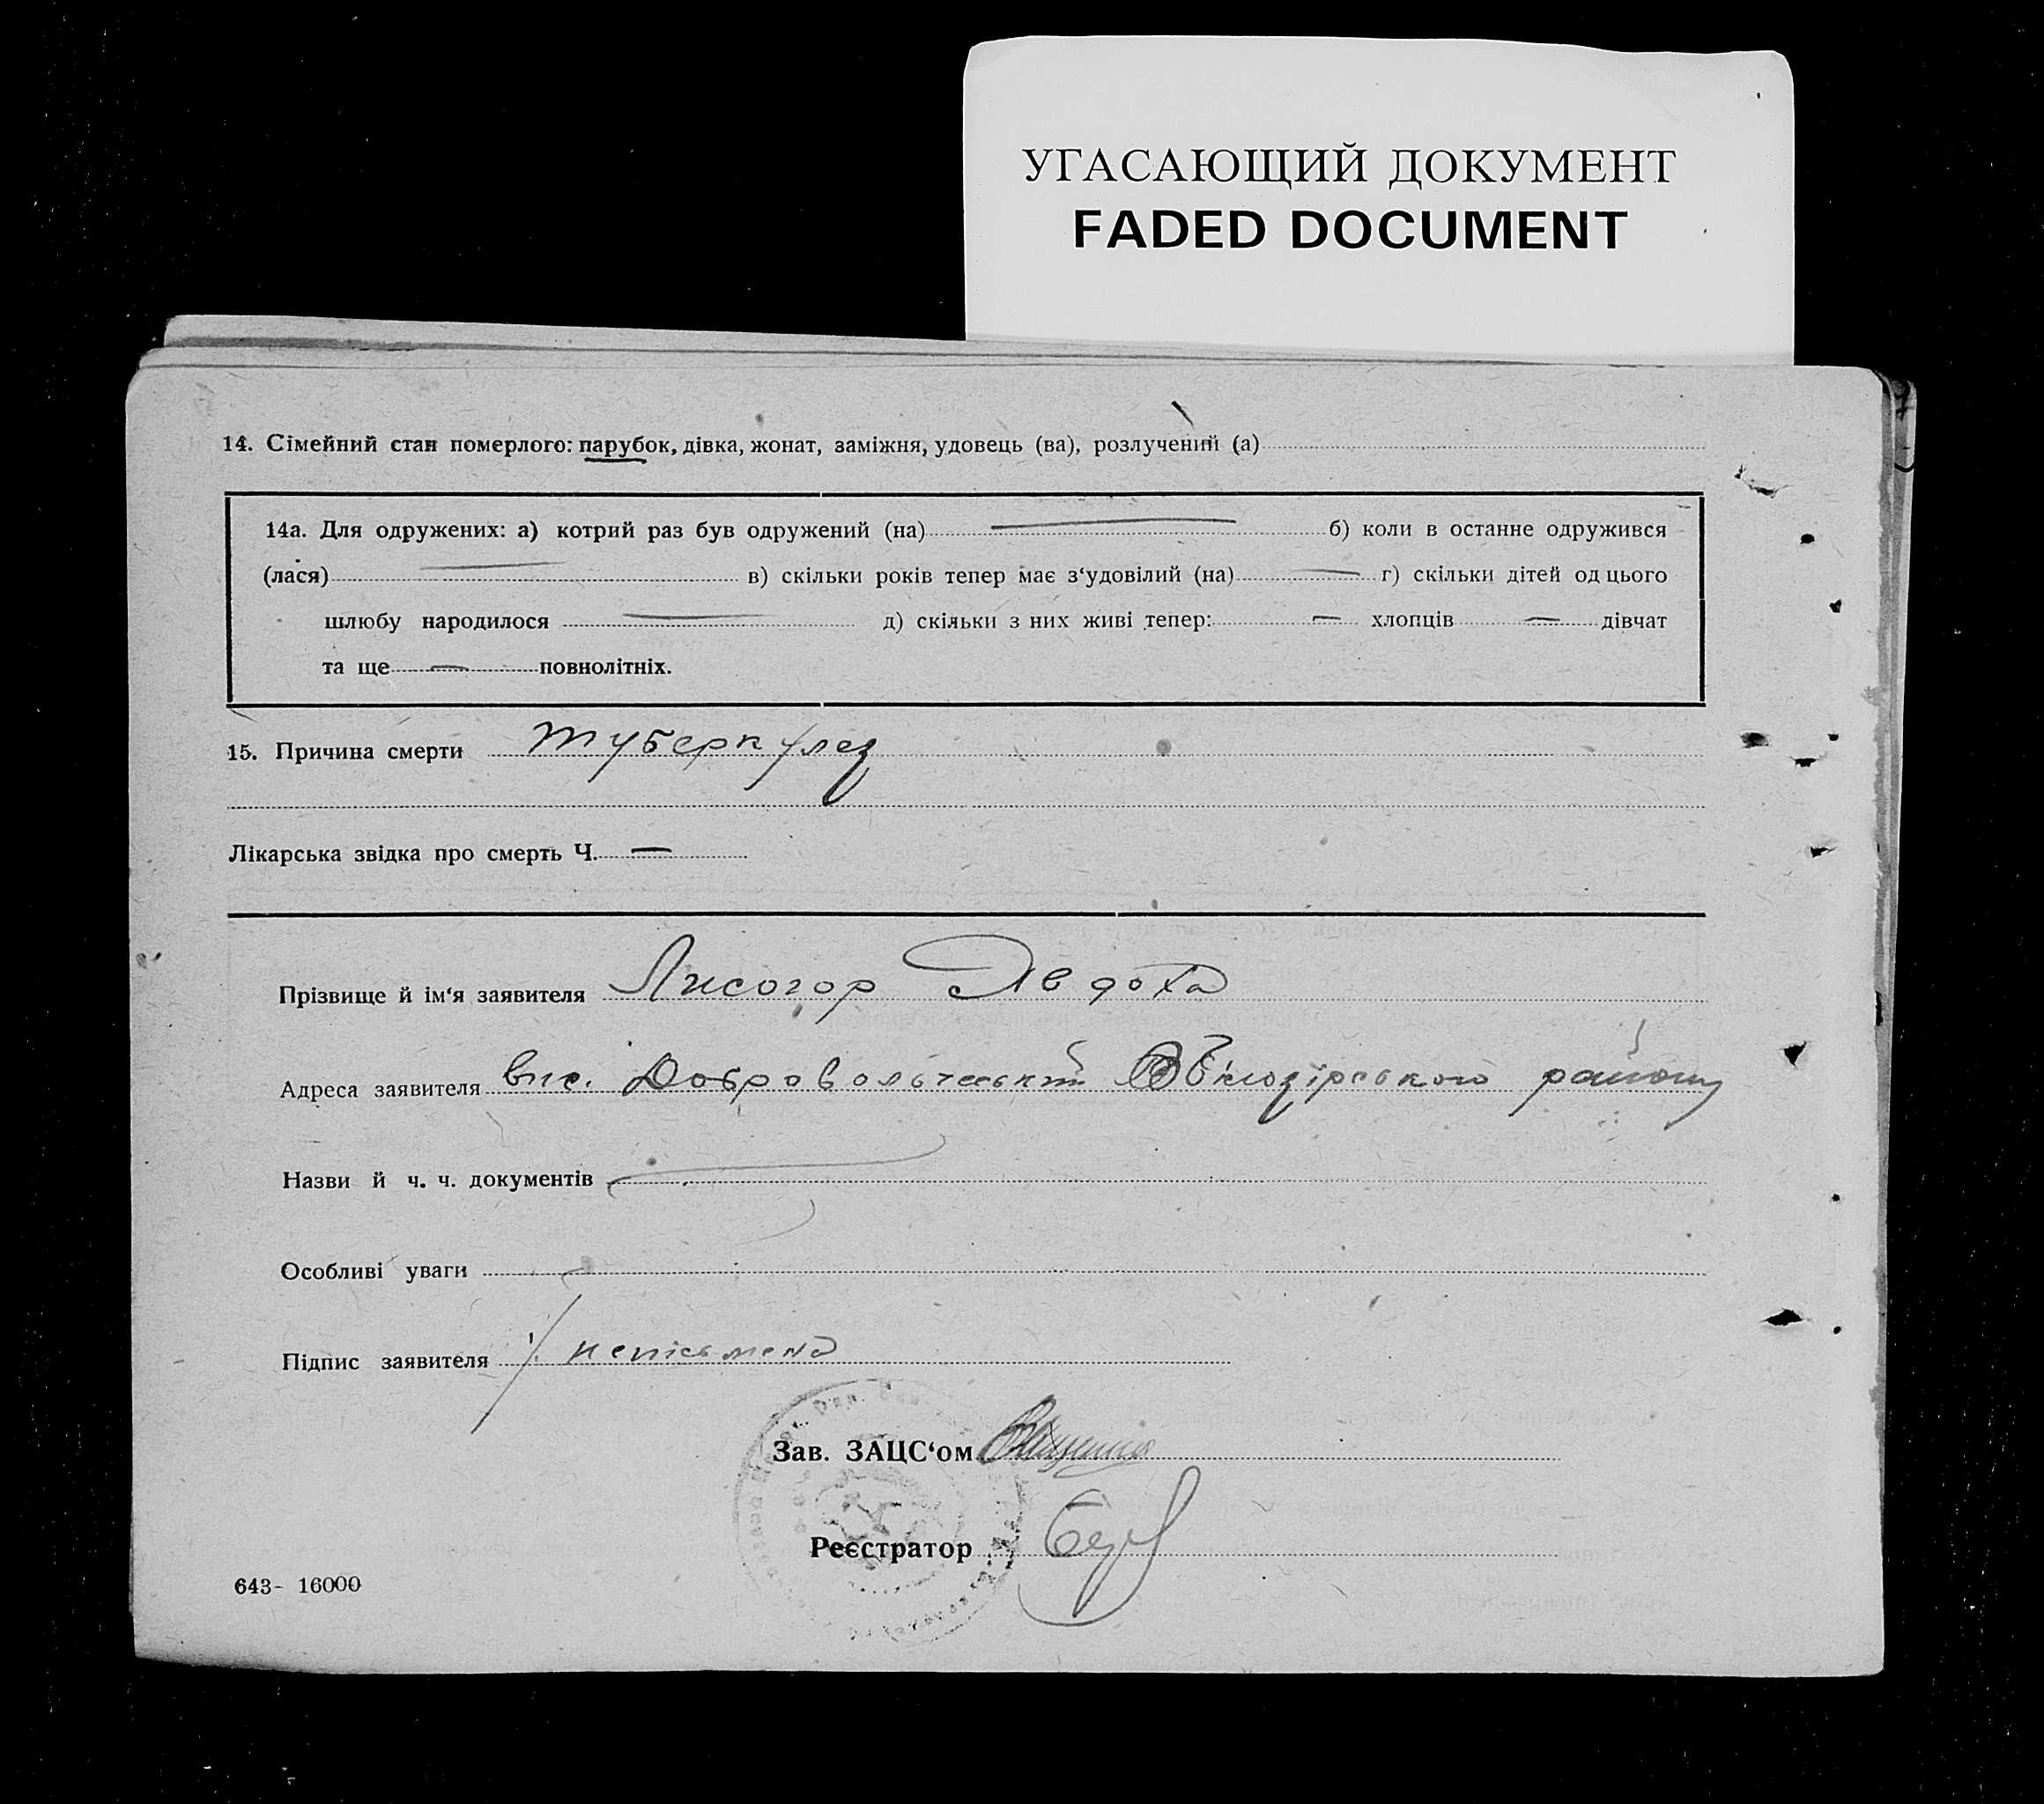 УГАСАЮЩИЙ ДОКУМЕНТ
FADED DOCUMENT
14. Сімейний стан померлого: парубок, дівка, жонат, заміжня, удовець (ва), розлучений (а)
14а. Для одружених: а) котрий раз був одружений (на) — б) коли в останне одружився
(лася) — в) скільки років тепер має з‘удовілий (на) — г) скільки дітей од цього
шлюбу народилося — д) скільки з них живі тепер: — хлопців — дівчат
та ще — повнолітніх.
15. Причина смерти туберкулез
Лікарська звідка про смерть Ч. —
Прізвище й ім‘я заявителя Лисогор Явдоха
Адреса заявителя району
Назви й ч. ч. документів —
Особливі уваги
Підпис заявителя непісьмена
Зав. ЗАЦС‘ом
Реєстратор
643- 16000